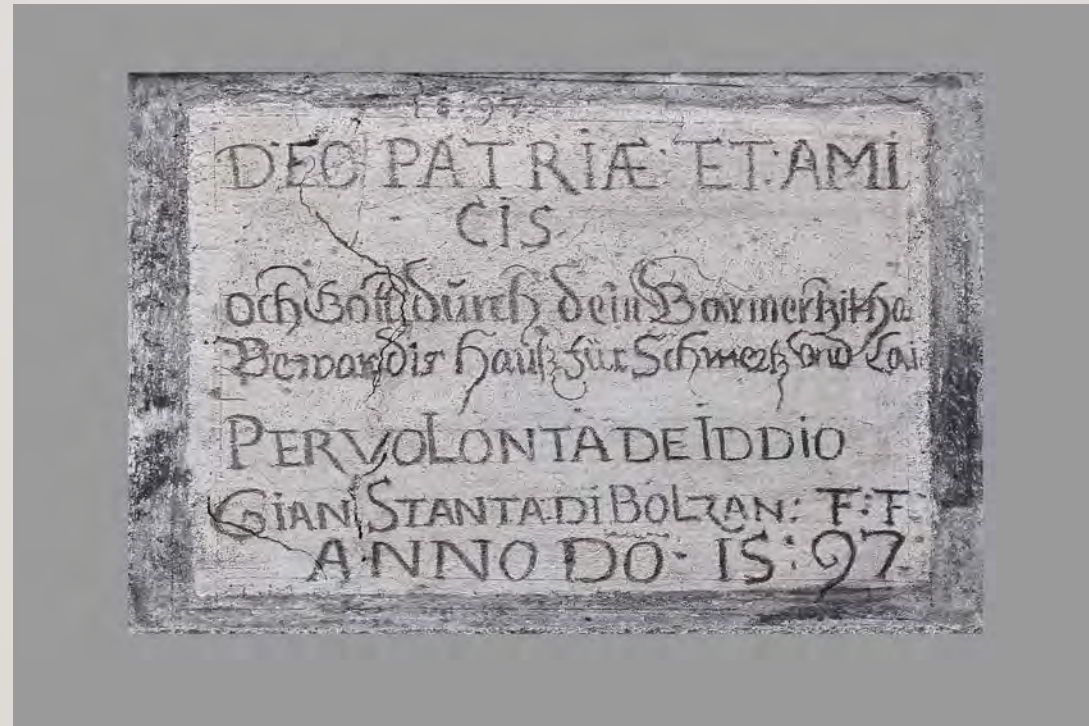 15·97
DEO PATRIÆ· ET·AMI
CIS·
och Gott dŭrch dein Barmertzikha
Bewar dis Hauß für Schmertz und Lai
PER VOLONTA DE IDDIO
GIAN STANTA·DI BOLZAN: F:F·
A·NNO DO· 1S:97·